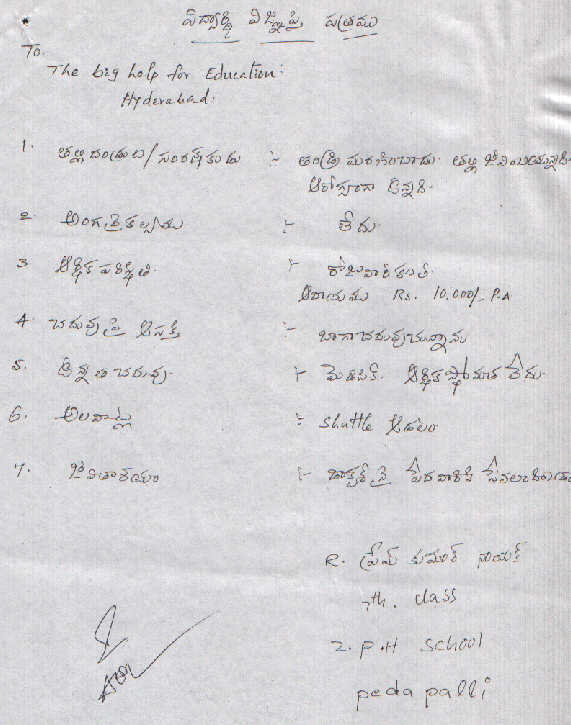 విద్యార్థి విజ్ఞప్తి పత్రము
To.
The big help for Education:
Hyderabad:
1. తల్లిదండ్రులు/సంరక్షకుడు :- తండ్రి మరణించాడు. తల్లి జీవించియున్నది
ఆరోగ్యంగా ఉన్నది.
2 అంగవైకల్యము :- లేదు.
3 ఆర్థిక పరిస్థితి :- రోజువారి కూలి
ఆదాయము Rs. 10,000/- P.A
4. చదువుపై ఆసక్తి :- బాగా చదువుచున్నాను
5. ఉన్నత చదువు :- మెడిసిన్. ఆర్థిక స్తోమత లేదు.
6. అలవాట్లు : shuttle ఆడటం
7. జీవితాశయం :- డాక్టర్ నై పేదవారికి
R. ప్రేమ్ కుమార్ నాయక్
7th. class
Z. P.H school
peda palli